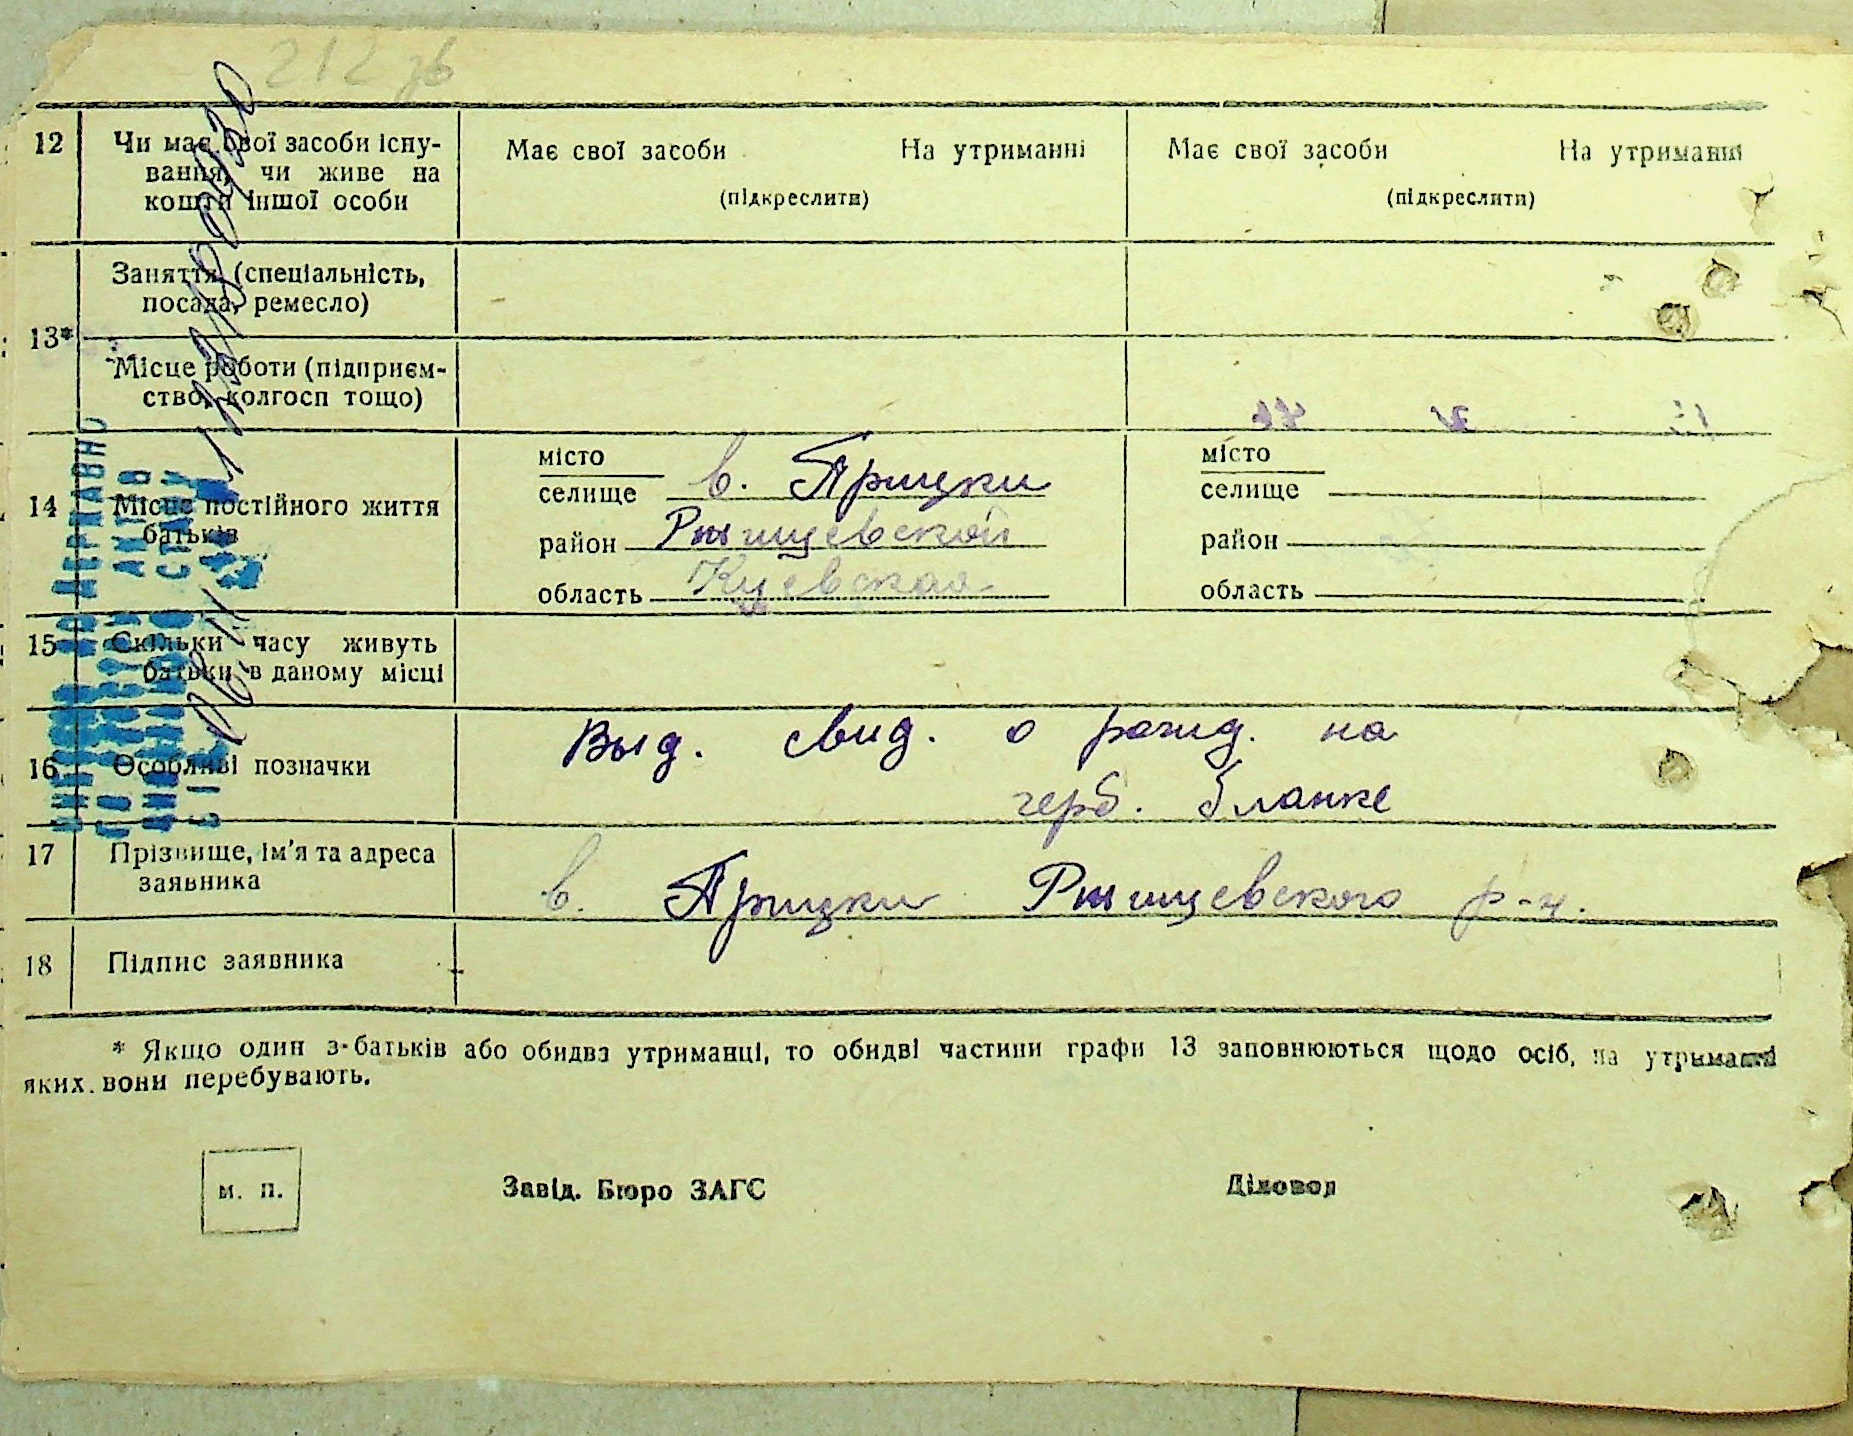 212 зв
12 Чи має свої засоби існу-
вання, чи живе на
кошти іншої особи
Має свої засоби На утриманні
(підкреслити)
Має свої засоби На утриманні
(підкреслити)
13*
Заняття (спеціальність,
посада, ремесло)
Місце роботи (підприєм-
ство, колгосп тощо)
14 Місце постійного життя
батьків
місто
селище в. Ярицки
район Ржищевской
область Киевская
місто
селище
район
область
15 Скільки часу живуть
батьки в даному місці
16 Особливі позначки
Выд. свид. о рожд. на
герб. бланке
17 Прізвище, ім'я та адреса
заявника
в. Ярицки Ржищевского р-н.
18 Підпис заявника
* Якщо один з батьків або обидва утриманці, то обидві частини графи 13 заповнюються щодо осіб, на утриманні
яких вони перебувають.
м. п.
Завід. Бюро ЗАГС
Діловод